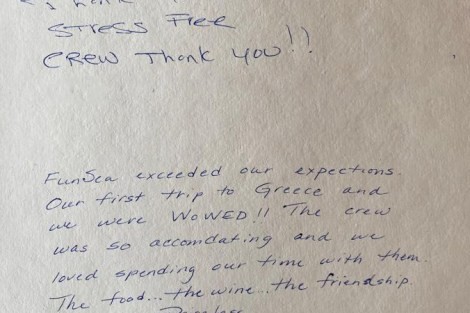 STRESS Free
CREW Thank you!!
FunSea exceeded our expections.
Our first trip to Greece and
we were WOWED!! The crew
was so accomdating and we
loved spending our time with them.
The food... the wine... the friendship.